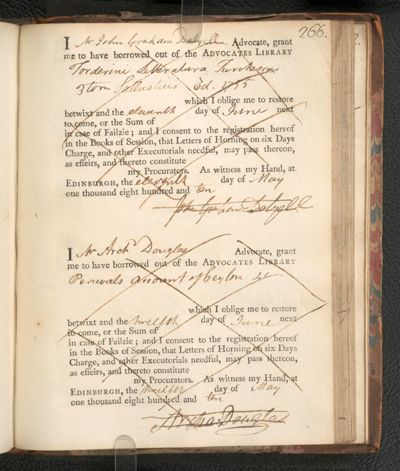 266.
I Mr John Graham Dalyell Advocate, grant
me to have borrowed out of the ADVOCATES LIBRARY
Toderini Litteratura Turchesca
3 tom Sallustius Ed. 1755
which I oblige me to restore
betwixt and the eleventh day of June next
to come, or the Sum of
in case of Failzie; and I consent to the registration hereof
in the Books of Session, that Letters of Horning on six Days
Charge, and other Executorials needful, may pass thereon,
as effeirs, and thereto constitute
my Procurators. As witness my Hand, at
EDINBURGH, the eleventh day of May
one thousand eight hundred and ten
John Graham Dalyell
I Mr Archd Douglas Advocate, grant
me to have borrowed out of the ADVOCATES LIBRARY
Percivals account of Ceylon 4to
which I oblige me to restore
betwixt and the twelfth day of June next
to come, or the Sum of
in case of Failzie; and I consent to the registration hereof
in the Books of Session, that Letters of Horning on six Days
Charge, and other Executorials needful, may pass thereon,
as effeirs, and thereto constitute
my Procurators. As witness my Hand, at
EDINBURGH, the twelfth day of May
one thousand eight hundred and ten
Douglas